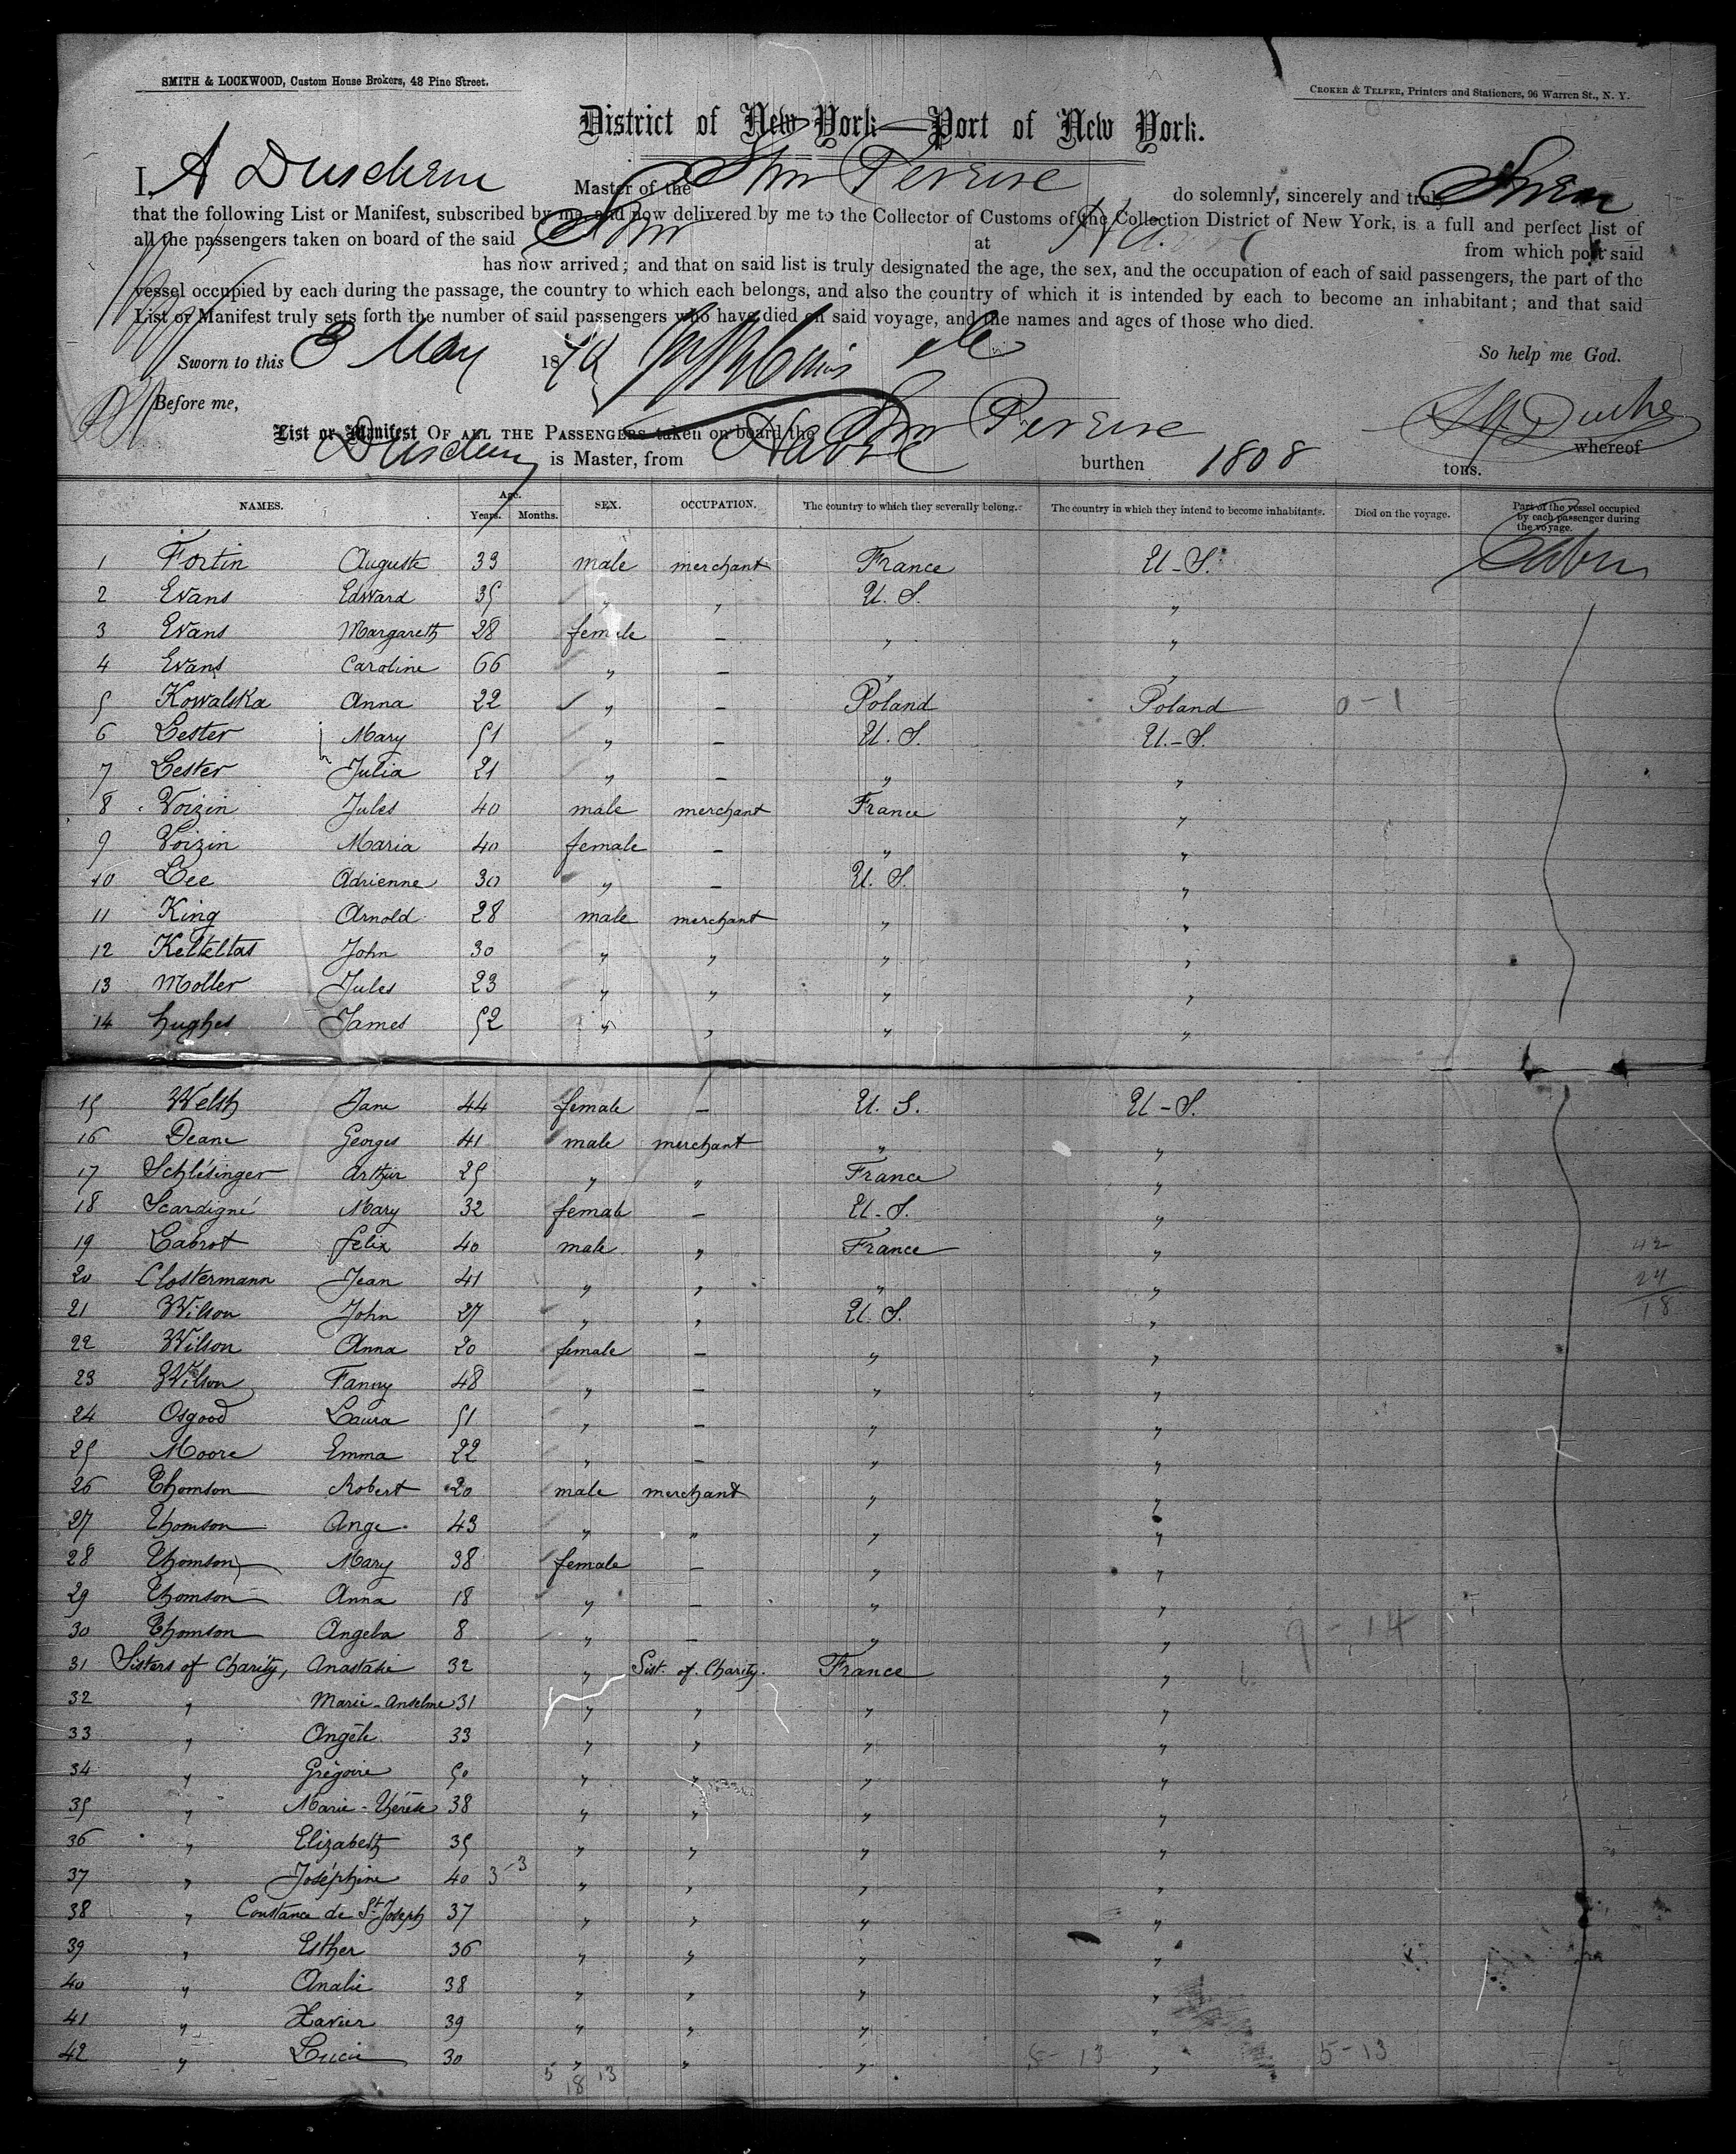 SMITH & LOCKWOOD, Custom House Brokers, 48 Pine Street.
CROKER & TELFER, Printers and Stationers, 96 Warren St., N. Y.
District of New York—Port of New York.
I, A Duschene Master of the Stmr Pereire do solemnly, sincerely and truly Swear
that the following List or Manifest, subscribed by me, and now delivered by me to the Collector of Customs of the Collection District of New York, is a full and perfect list of
all the passengers taken on board of the said Stmr at Havre from which port said
has now arrived; and that on said list is truly designated the age, the sex, and the occupation of each of said passengers, the part of the
vessel occupied by each during the passage, the country to which each belongs, and also the country of which it is intended by each to become an inhabitant; and that said
List or Manifest truly sets forth the number of said passengers who have died on said voyage, and the names and ages of those who died.
Sworn to this 8 May 18 So help me God.
Before me,
List or Manifest OF ALL THE PASSENGERS taken on board the Stmr Pereire whereof
is Master, from Havre burthen 1808 tons.
NAMES. Age. SEX. OCCUPATION. The country to which they severally belong. The country in which they intend to become inhabitants. Died on the voyage. Part of the vessel occupied by each passenger during the voyage.
Years. Months.
1 Fortin Auguste 33 male merchant France U-S. Cabin
2 Evans Edward 35 " " U. S. "
3 Evans Margareth 28 female - " "
4 Evans Caroline 66 " - " "
5 Kowalska Anna 22 " - Poland Poland 0-1
6 Lester Mary 51 " - U. S. U.-S.
7 Lester Julia 21 " - " "
8 Voizin Jules 40 male merchant France "
9 Voizin Maria 40 female - " "
10 Lee Adrienne 30 " - U. S. "
11 King Arnold 28 male merchant " "
12 Kelteltas John 30 " " " "
13 Moller Jules 23 " " " "
14 hughes James 52 " " " "
15 Welsh Jane 44 female - U. S. U-S.
16 Deane Georges 41 male merchant " "
17 Schlésinger Arthur 25 " " France "
18 Scardigné Mary 32 female - U-S. "
19 Cabrot felix 40 male " France "
42
20 Clostermann Jean 41 " " " "
24
21 Wilson John 27 " " U. S. "
18
22 Wilson Anna 20 female - " "
23 Wilson Fanny 48 " - " "
24 Osgood Laura 51 " - " "
25 Moore Emma 22 " - " "
26 Thomson Robert 20 male merchant " "
27 Thomson Ange 43 " " " "
28 Thomson Mary 38 female - " "
29 Thomson Anna 18 " - " "
30 Thomson Angela 8 " - " " 9-14
31 Sisters of Charity, Anastasie 32 " Sist. of Charity. France "
32 " Marie-Anselme 31 " " " "
33 " Angèle 33 " " " "
34 " Grégoire 50 " " " "
35 " Marie-Thérèse 38 " " " "
36 " Elizabeth 35 " " " "
37 " Joséphine 40 3-3 " " " "
38 " Constance de St Joseph 37 " " " "
39 " Esther 36 " " " "
40 " Analie 38 " " " "
41 " Xavier 39 " " " "
42 " Lucie 30 " " " "
5 13 5-13 5-13
18